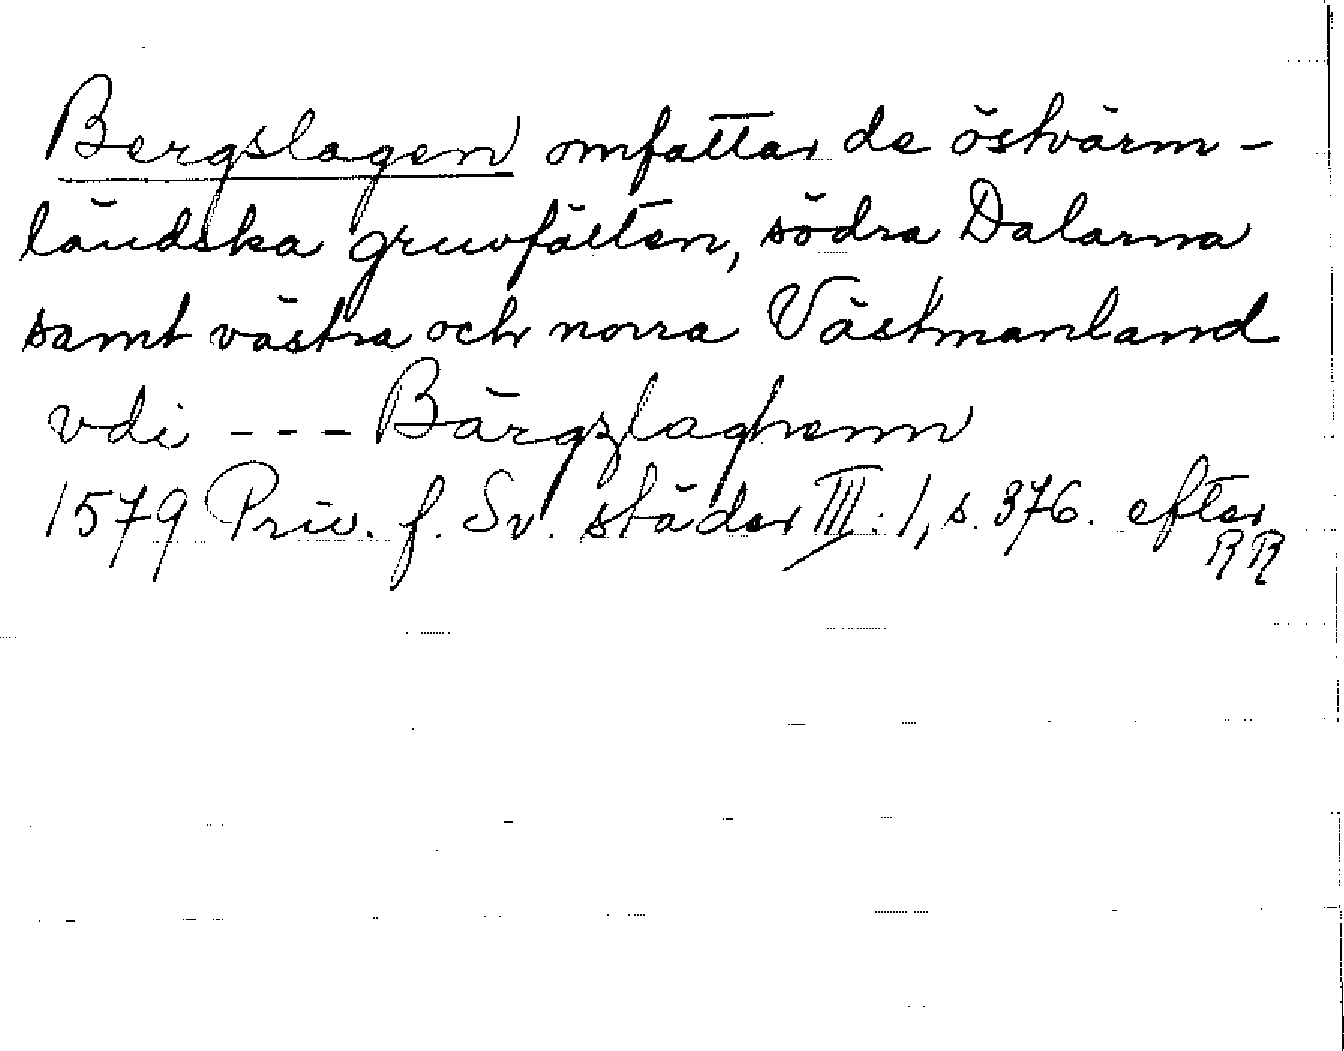 Bergslagen omfattar de östvärm-
ländska gruvfälten, södra Dalarna
samt västra och norra Västmanland
vdi --- Bärgzlaghenn
1579 Priv. f. Sv. städer III:1, s. 376. efter
RR